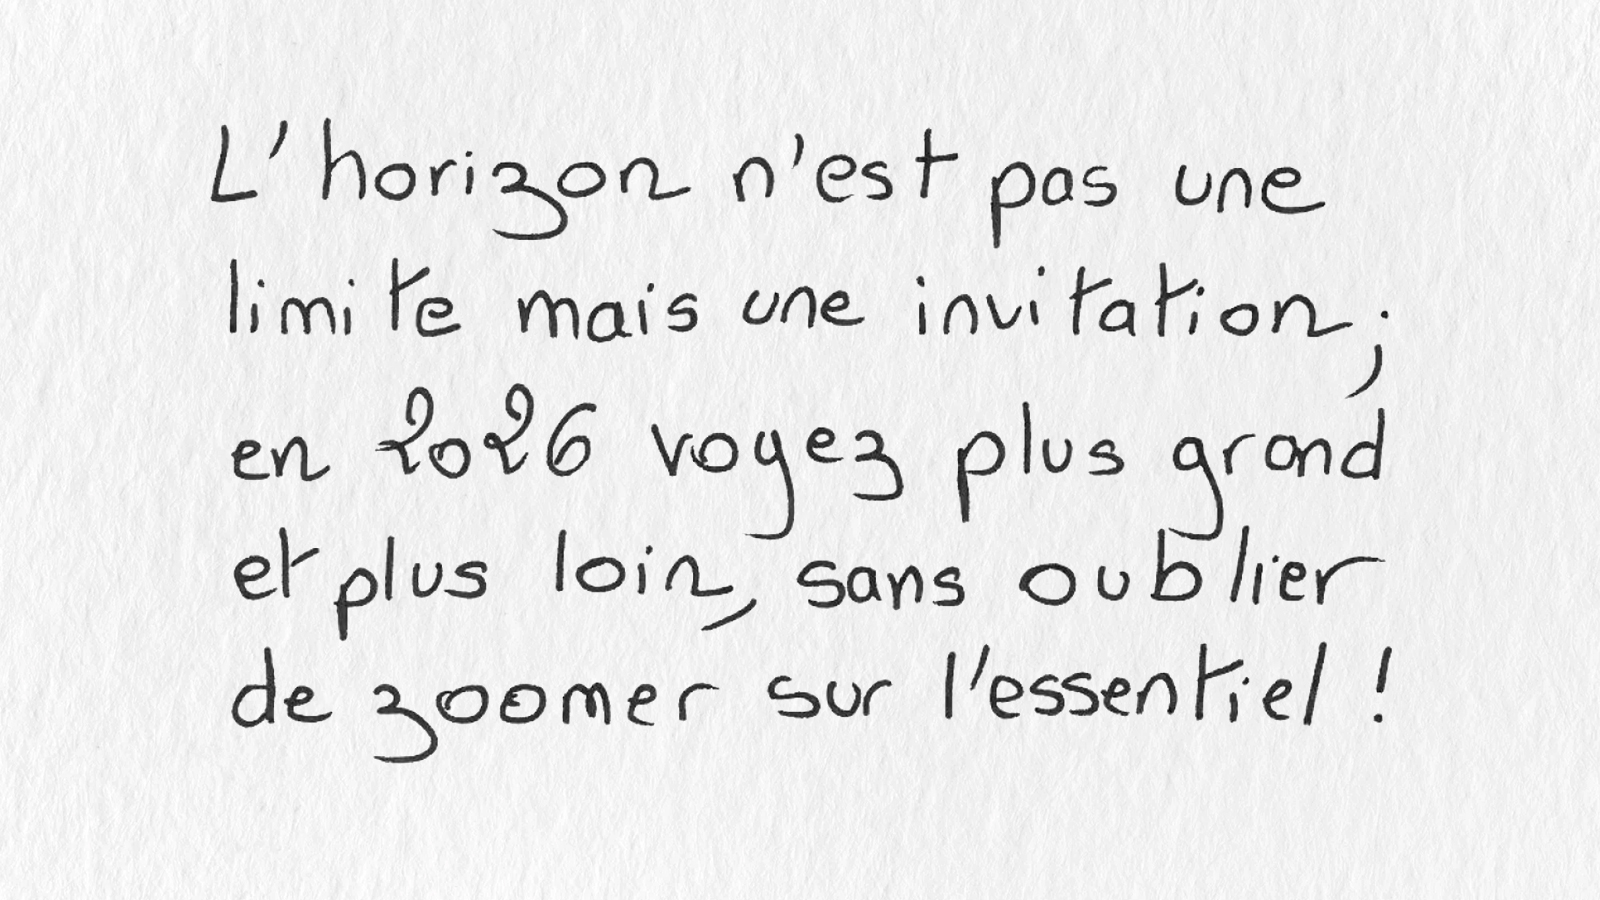 L'horizon n'est pas une
limite mais une invitation ;
en 2026 voyez plus grand
et plus loin, sans oublier
de zoomer sur l'essentiel !